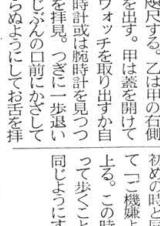 咫尺する。乙は甲の右側
を出す。甲は蓋を開けて
ウォッチを取り出すか自
時計或は腕時計を見つつ
を拝見。つぎに一歩退い
じぶんの口前にかざして
らぬようにしてお舌を拝
初めの時と同
て「ご機嫌よ
上る。この時
って歩くこと
同じようにす